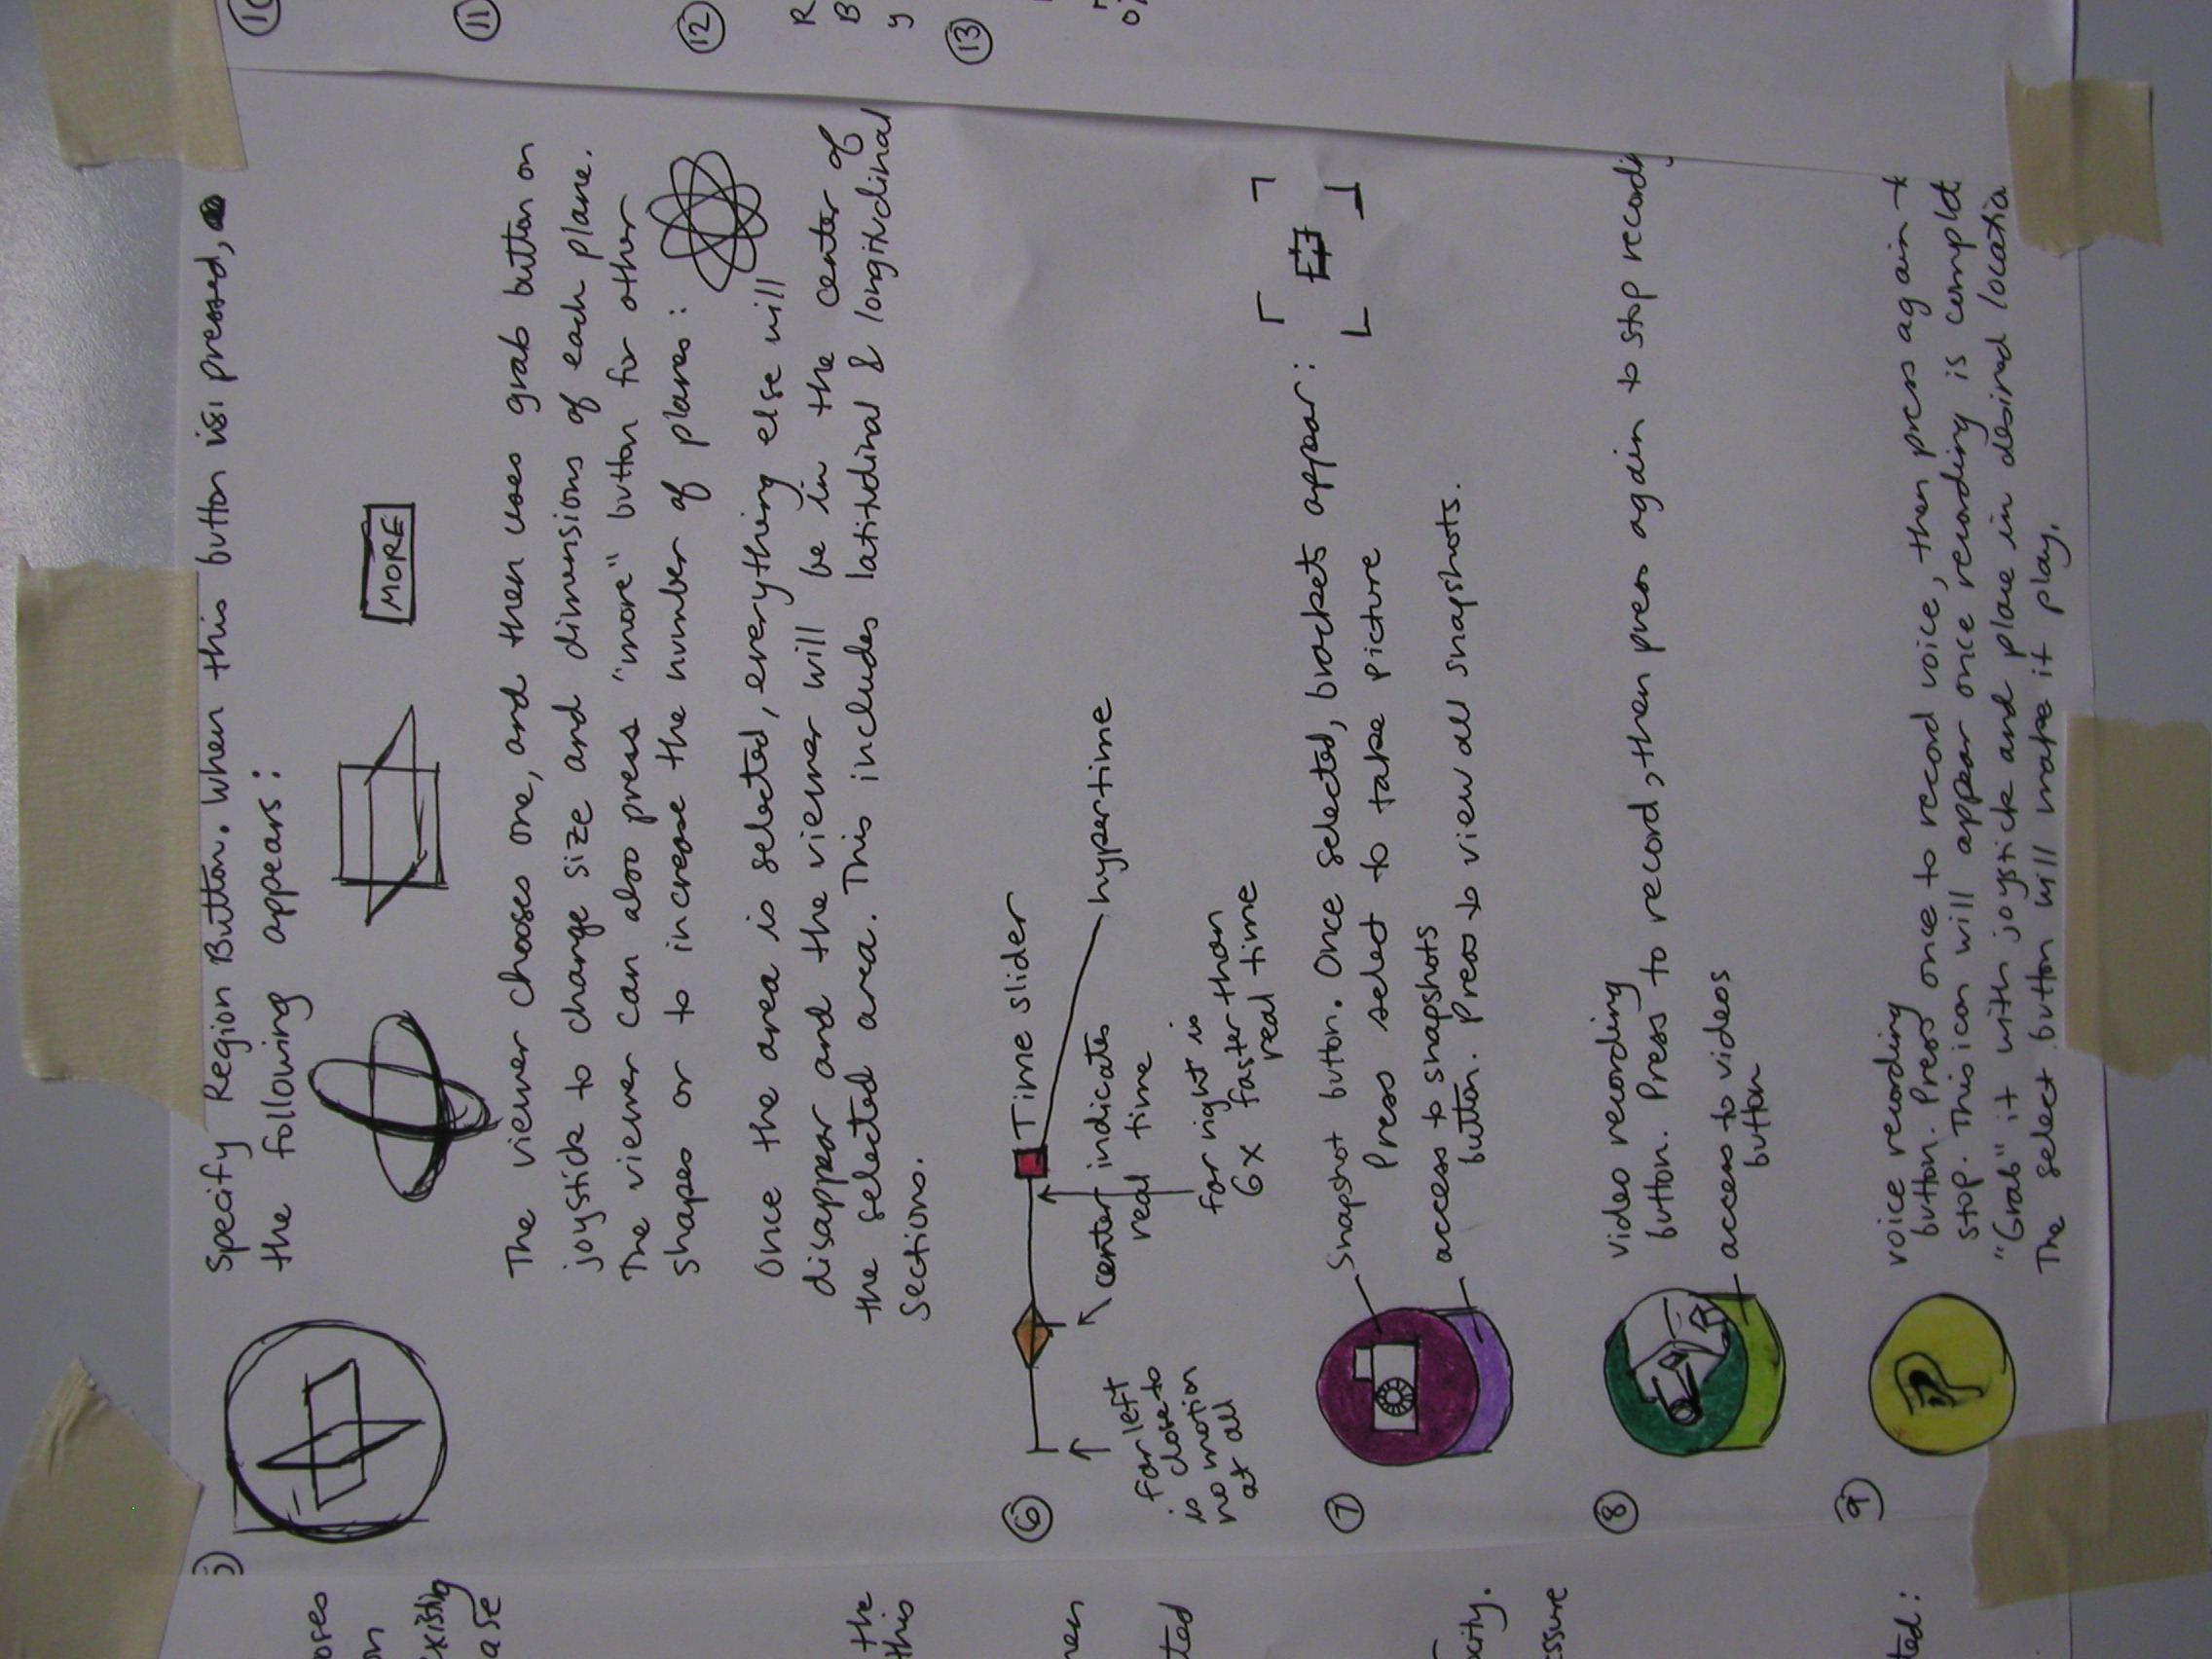 5)
Specify Region Button. When this button is pressed,
the following appears:
MORE
The viewer chooses one, and then uses grab button on
joystick to change size and dimensions of each plane.
The viewer can also press "more" button for other
shapes or to increase the number of planes:
Once the area is selected, everything else will
disappear and the viewer will be in the center of
the selected area. This includes latitudinal & longitudinal
sections.
6
Time slider
hypertime
far left
is close to
no motion
at all
center indicates
real time
far right is
6x faster than
real time
7
Snapshot button. Once selected, brackets appear:
Press select to take picture
access to snapshots
button. Press to view all snapshots.
8
video recording
button. Press to record, then press again to stop recording
access to videos
button
9
voice recording
button. Press once to record voice, then press again t
stop. This icon will appear once recording is complet
"Grab" it with joystick and place in desired locatio
The select button will make it play.
oses
on
existing
ase
the
this
ted
ocity.
ssure
ted:
11
12
R
B
y
13